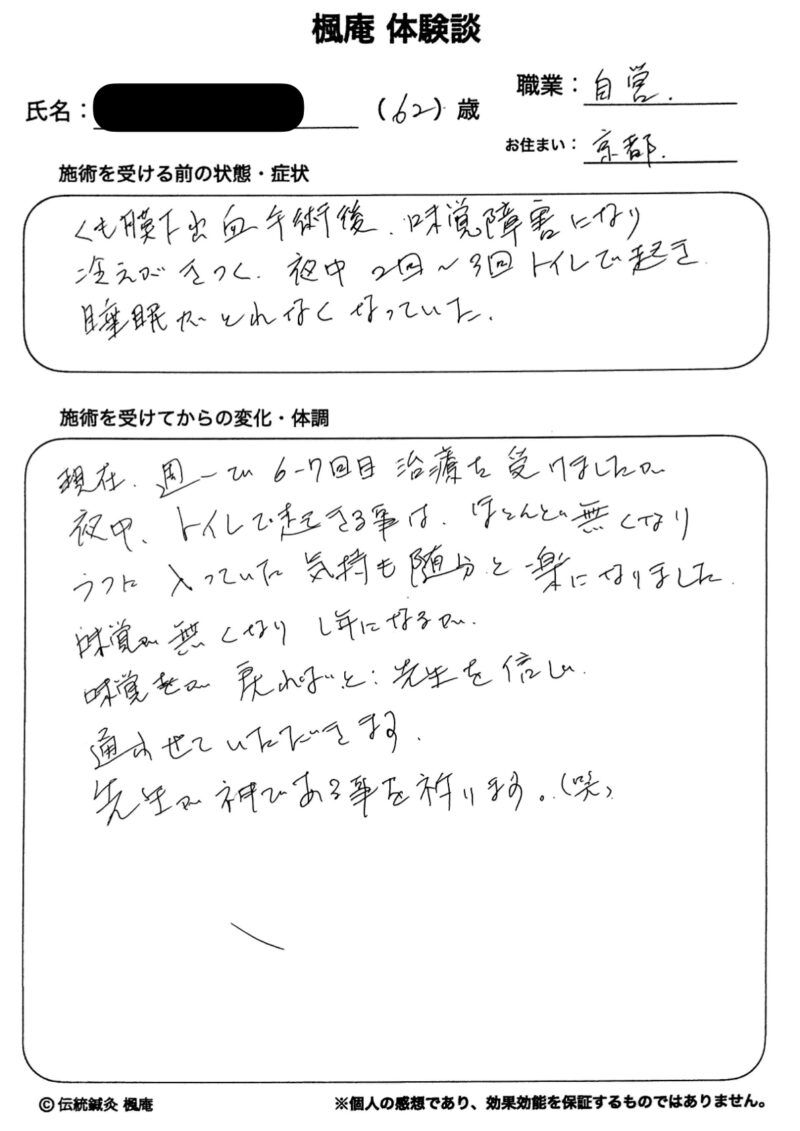 楓庵 体験談
氏名：
（62）歳
職業：自営.
お住まい：京都.
施術を受ける前の状態・症状
くも膜下出血手術後、味覚障害になり
冷えがきつく、夜中 2回〜3回トイレで起き
睡眠がとれなくなっていた.
施術を受けてからの変化・体調
現在、週一で 6-7回目 治療を受けましたが
夜中、トイレで起きる事は、ほとんど無くなり
うつに入っていた気持も随分と楽になりました.
味覚が無くなり 1年になるが、
味覚が戻ればと：先生を信じ、
通わせていただきます.
先生が神である事を祈ります。(笑)
© 伝統鍼灸 楓庵
※個人の感想であり、効果効能を保証するものではありません。